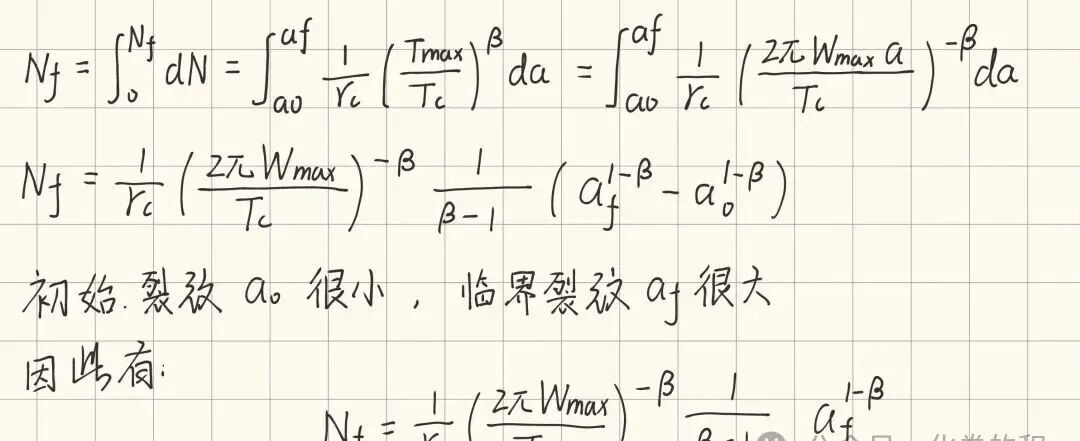 N_f = ∫_0^{N_f} dN = ∫_{a0}^{af} \frac{1}{r_c} (\frac{T_{max}}{T_c})^β da = ∫_{a0}^{af} \frac{1}{r_c} (\frac{2π W_{max} a}{T_c})^{-β} da
N_f = \frac{1}{r_c} (\frac{2π W_{max}}{T_c})^{-β} \frac{1}{β-1} (a_f^{1-β} - a_0^{1-β})
初始.裂纹 a_0 很小，临界裂纹 af 很大
因此有:
N_f = \frac{1}{r} (\frac{2π W_{max}}{T})^{-β} \frac{1}{β-1} a_f^{1-β}